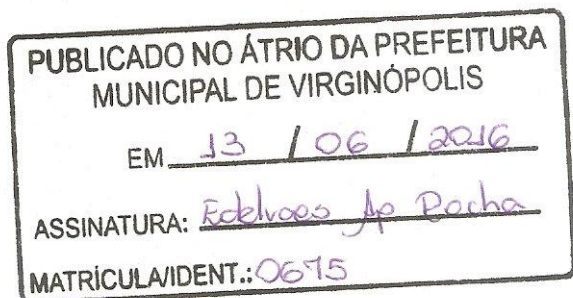 PUBLICADO NO ÁTRIO DA PREFEITURA
MUNICIPAL DE VIRGINÓPOLIS
EM 13 / 06 / 2016
ASSINATURA: Ap Rocha
MATRÍCULA/IDENT.: 0675